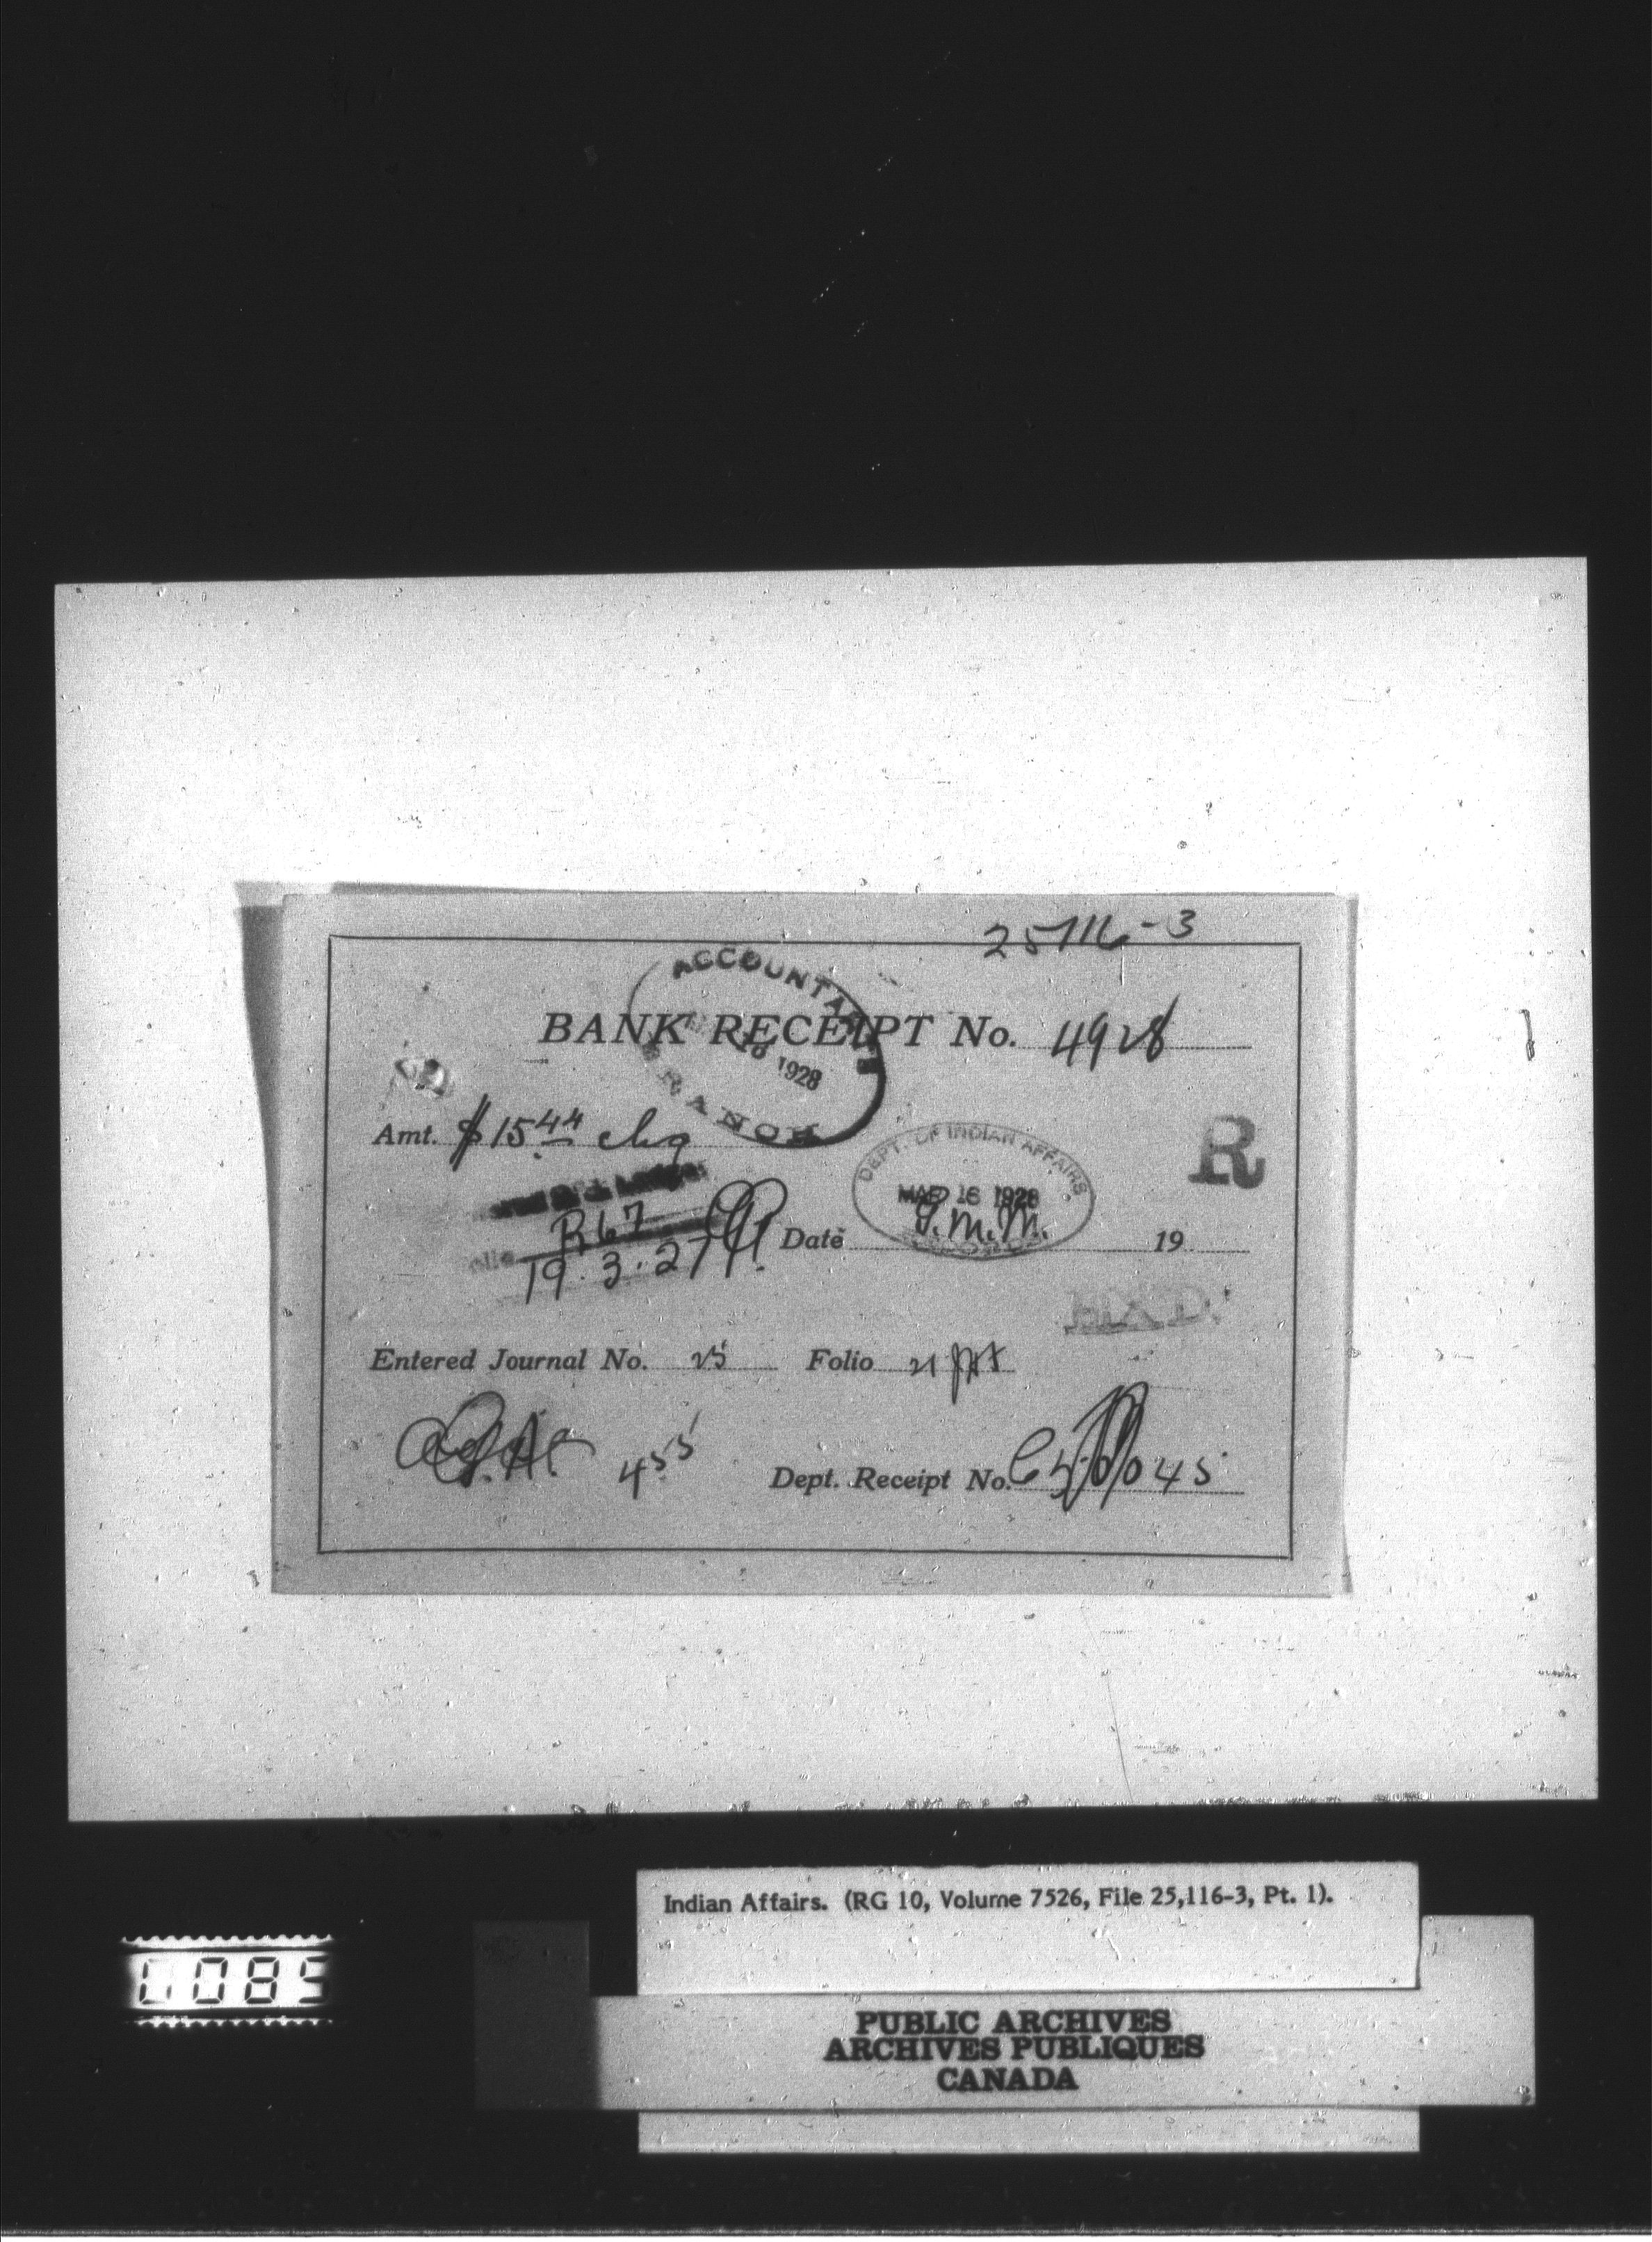 25116-3
ACCOUNTANT
BRANCH
1928
BANK RECEIPT No. 4928
Amt. $15.44 chq
DEPT. OF INDIAN AFFAIRS
MAR 16 1928
R
R67
19.3.27
Date 19
Entered Journal No. 25 Folio 21
455
Dept. Receipt No.
Indian Affairs. (RG 10, Volume 7526, File 25,116-3, Pt. 1).
0085
PUBLIC ARCHIVES
ARCHIVES PUBLIQUES
CANADA